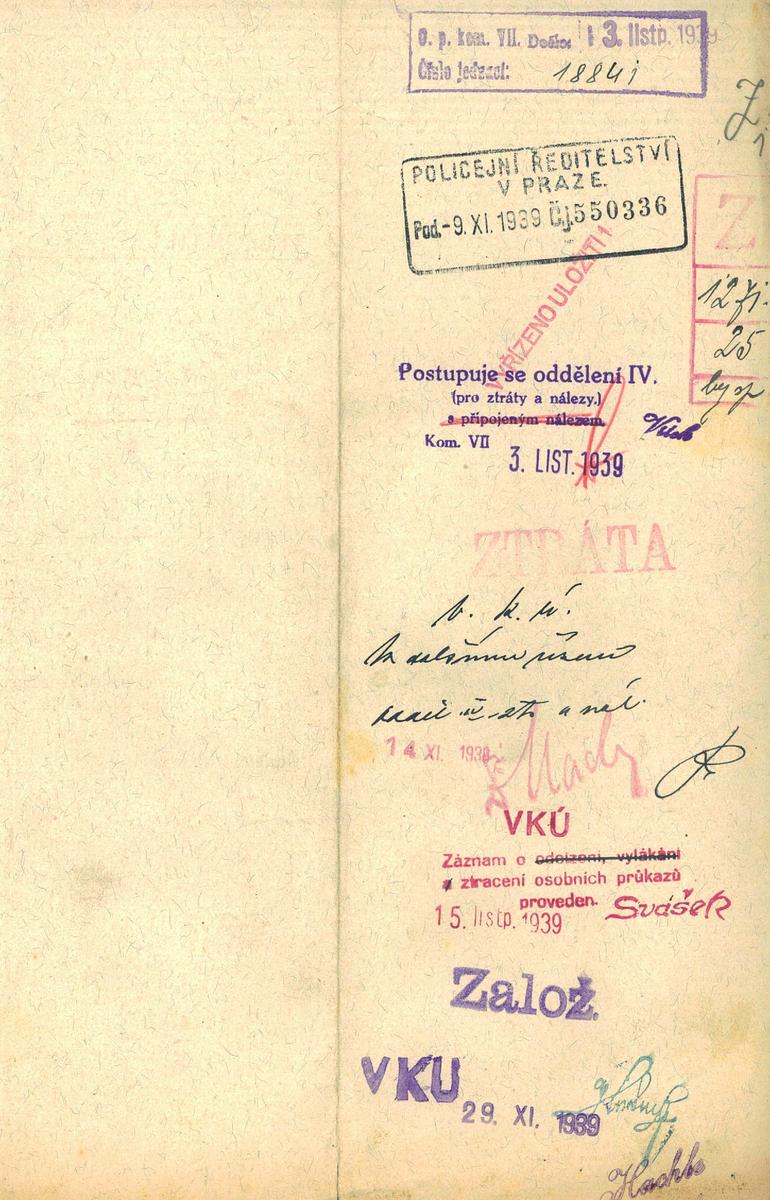 O. p. kom. VII. Došlo: 3. listp. 1939
Číslo jednací: 1884
POLICEJNÍ ŘEDITELSTVÍ
V PRAZE.
Pod. -9. XI. 1939 Čj. 550336
VYŘÍZENO ULOŽITI!
Z
25
Postupuje se oddělení IV.
(pro ztráty a nálezy.)
s připojeným nálezem.
Kom. VII
3. LIST. 1939
ZTRÁTA
v. k. ú.
k dalšímu řízení
a nál.
14 XI. 1939
VKÚ
Záznam o odcizení, vylákání
a ztracení osobních průkazů
proveden.
15. listp. 1939 Svášek
Založ.
VKU
29. XI. 1939